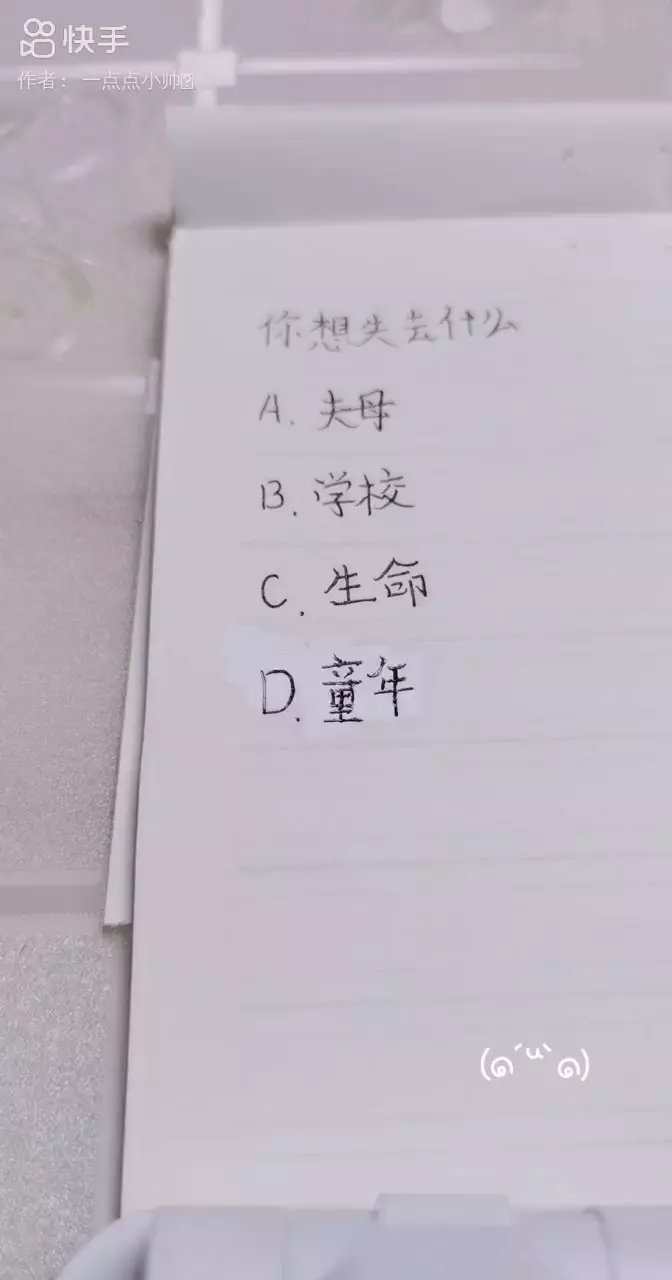 快手
作者：一点点小帅图
你想失去什么
A. 夫母
B. 学校
C. 生命
D. 童年
(๑´ㅂ`๑)